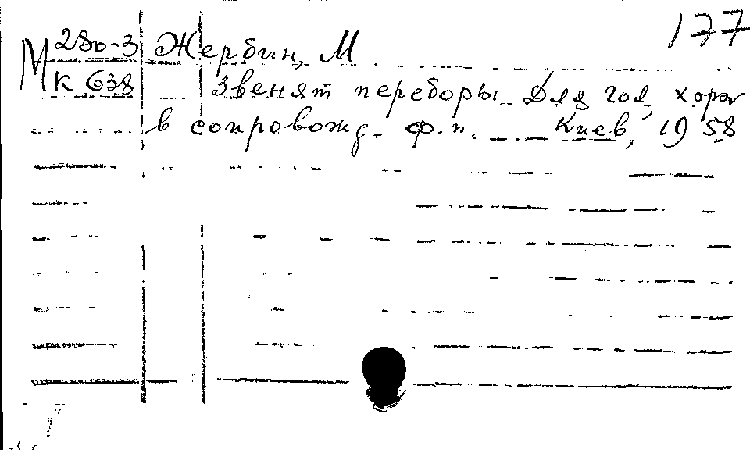 177
М 280-3 Жербин, М
К 638 Звенят переборы. Для гол, хора
в сопровожд. ф.п. Киев, 1958